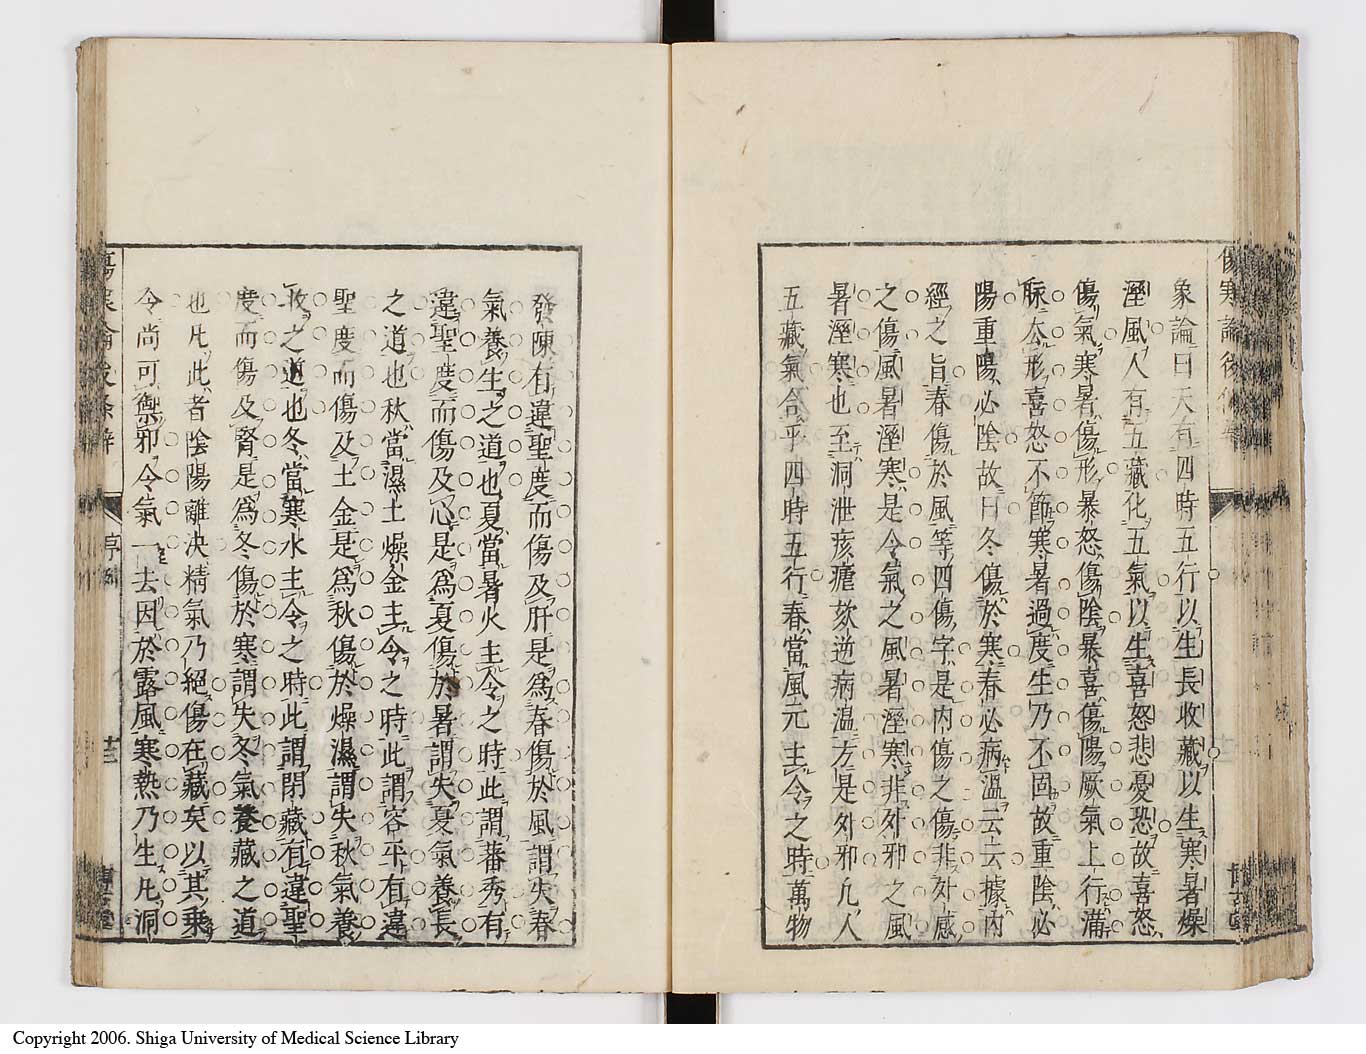 象論曰天有四時五行以生長收藏以生寒暑燥
溼風人有五藏化五氣以生喜怒悲憂恐故喜怒
傷氣寒暑傷形暴怒傷陰暴喜傷陽厥氣上行滿
脉去形喜怒不節寒暑過度生乃不固故重陰必
陽重陽必陰故曰冬傷於寒春必病溫云云據內
經之旨春傷於風等四傷字是內傷之傷非外感
之傷風暑溼寒是令氣之風暑溼寒非外邪之風
暑溼寒也至洞泄痎瘧欬逆病溫方是外邪凡人
五藏氣合乎四時五行春當風元主令之時萬物
發陳有違聖度而傷及肝是爲春傷於風謂失春
氣養生之道也夏當暑火主令之時此謂蕃秀有
違聖度而傷及心是爲夏傷於暑謂失夏氣養長
之道也秋當濕土燥金主令之時此謂容平有違
聖度而傷及土金是爲秋傷於燥濕謂失秋氣養
收之道也冬當寒水主令之時此謂閉藏有違聖
度而傷及腎是爲冬傷於寒謂失冬氣養藏之道
也凡此者陰陽離決精氣乃絕傷在藏矣以其乘
令尚可禦邪令氣一去因於露風寒熱乃生凡洞
傷寒論後條辨
序例
十三
Copyright 2006. Shiga University of Medical Science Library